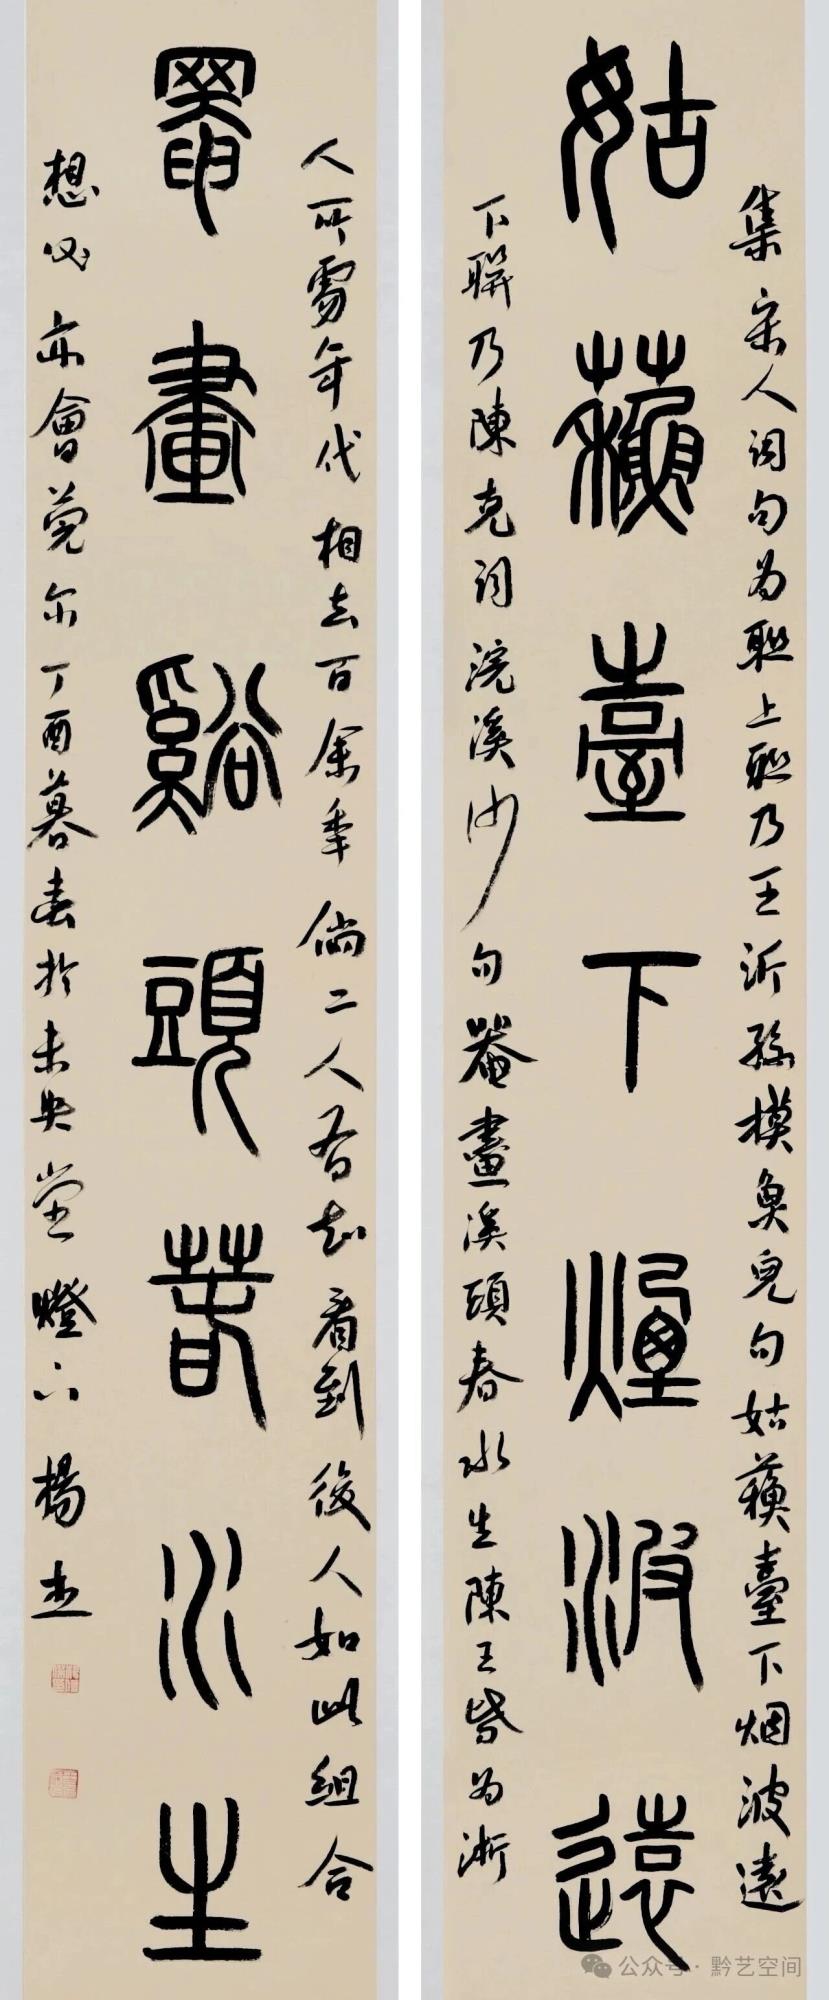 集宋人词句为联上联乃王沂孙摸魚兒句姑蘇臺下烟波遠
姑蘇臺下煙波遠
下聯乃陳克词浣溪沙句罨畫溪頭春水生陳王皆为浙
人所處年代相去百余年倘二人有知看到後人如此組合
罨畫谿頭萅水生
想必亦會莞尔丁酉暮春於未央堂燈下楊杰
公众号·黔艺空间